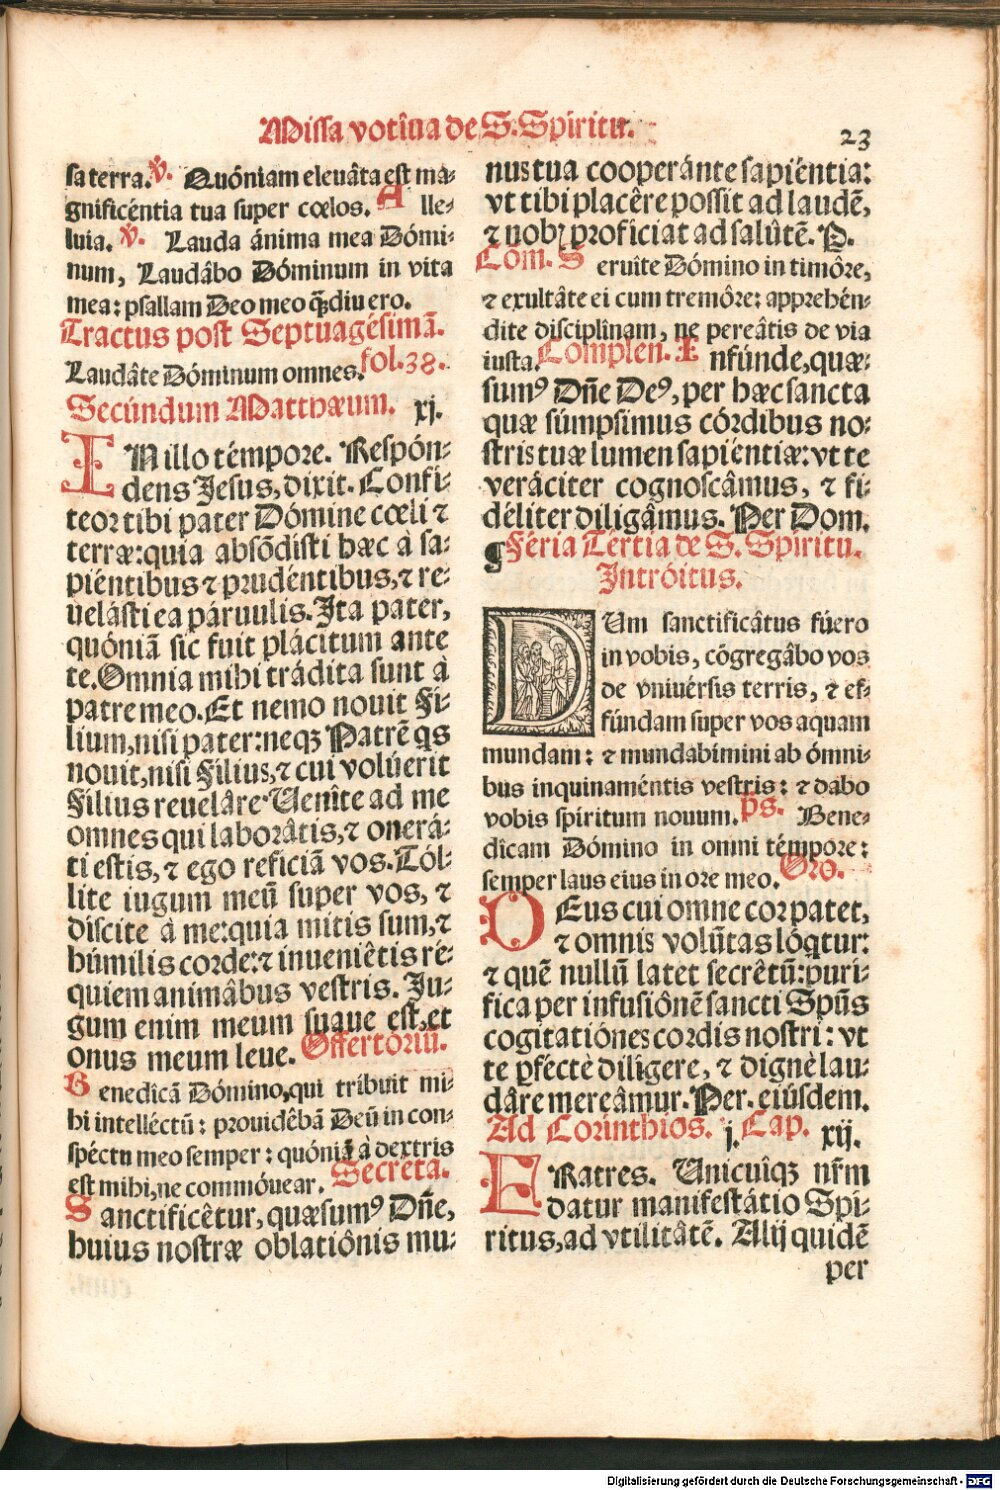 Missa votîua de S. Spiritu.
23
sa terra. ℣. Quóniam eleuâta est ma-
gnificéntia tua super cœlos. Alle-
luia. ℣. Lauda ánima mea Dómi-
num, Laudâbo Dóminum in vita
mea: psallam Deo meo q̃diu ero.
Tractus post Septuagésimã.
Laudâte Dóminum omnes. fol.38.
Secúndum Matthæum. xj.
IN illo témpore. Respón-
dens Jesus, dixit. Confi-
teor tibi pater Dómine cœli ⁊
terræ: quia absõdisti hæc à sa-
piéntibus ⁊ prudéntibus, ⁊ re-
uelásti ea páruulis. Ita pater,
quóniã sic fuit plácitum ante
te. Omnia mihi trádita sunt à
patre meo. Et nemo nouit Fi-
lium, nisi pater: neqꝫ Patrẽ qs
nouit, nisi Filius, ⁊ cui volúerit
Filius reuelâre. Uenîte ad me
omnes qui laborâtis, ⁊ onerá-
ti estis, ⁊ ego reficiã vos. Tól-
lite iugum meũ super vos, ⁊
díscite à me: quia mitis sum, ⁊
húmilis corde: ⁊ inueniêtis ré-
quiem animâbus vestris. Ju-
gum enim meum suaue est, et
onus meum leue. Offertóriũ.
Benedîcã Dómino, qui tríbuit mi-
hi intelléctũ: prouidêbã Deũ in con-
spéctu meo semper: quóniã à dextris
est mihi, ne commóuear. Secréta.
Sanctificêtur, quæsumꝰ Dñe,
huius nostræ oblatiônis mu-
nus tua cooperánte sapiéntia:
vt tibi placêre possit ad laudẽ,
⁊ nobꝭ proficiat ad salûtẽ. P.
Cõm. Seruîte Dómino in timôre,
⁊ exultâte ei cum tremôre: apprehén-
dite disciplînam, ne pereâtis de via
iusta. Complen. Infúnde, quæ-
sumꝰ Dñe Deꝰ, per hæc sancta
quæ súmpsimus córdibus no-
stris tuæ lumen sapiéntiæ: vt te
verâciter cognoscâmus, ⁊ fi-
déliter diligâmus. Per Dom.
¶ Féria Tértia de S. Spiritu.
Intróitus.
DUm sanctificâtus fúero
in vobis, cõgregâbo vos
de vniuérsis terris, ⁊ ef-
fúndam super vos aquam
mundam: ⁊ mundabimini ab ómni-
bus inquinaméntis vestris: ⁊ dabo
vobis spiritum nouum. ps. Bene-
dîcam Dómino in omni témpore:
semper laus eius in ore meo. Oro.
DEus cui omne cor patet,
⁊ omnis volũtas lóqtur:
⁊ quẽ nullũ latet secrêtũ: puri-
fica per infusiônẽ sancti Spũs
cogitatiónes cordis nostri: vt
te ꝑfectè diligere, ⁊ dignè lau-
dâre mereâmur. Per. eiúsdem.
Ad Corínthios. j. Cap. xij.
FRatres. Unicuîqꝫ nr̃m
datur manifestátio Spí-
ritus, ad vtilitâtẽ. Alij quidẽ
per
Digitalisierung gefördert durch die Deutsche Forschungsgemeinschaft - DFG